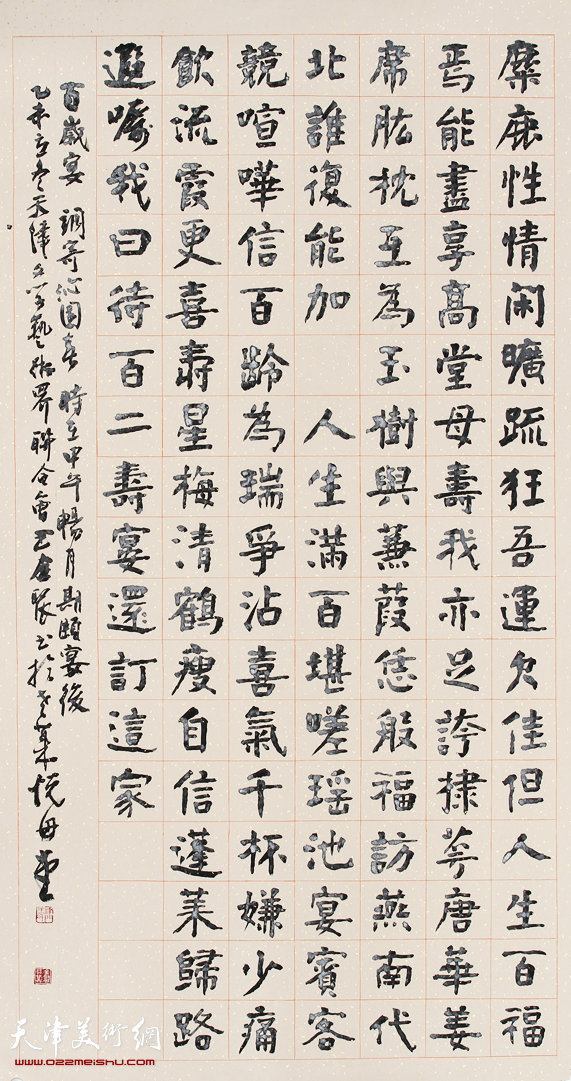 麋鹿性情闲曠疏狂吾運欠佳但人生百福
焉能盡享高堂母壽我亦足誇棣萼唐華姜
席肱枕互為玉樹與蒹葭恁般福訪燕南代
北誰復能加 人生滿百堪嗟瑶池宴賓客
競喧嘩信百齡為瑞爭沾喜氣千杯嫌少痛
飲流霞更喜壽星梅清鶴瘦自信蓬萊歸路
遐囑我曰待百二壽宴還訂這家
百歲宴 調寄沁園春 時在甲午暢月期頤宴後
乙未立冬天津文學藝術界聯合會 書於 萊悅母堂
天津美術網
www.022meishu.com